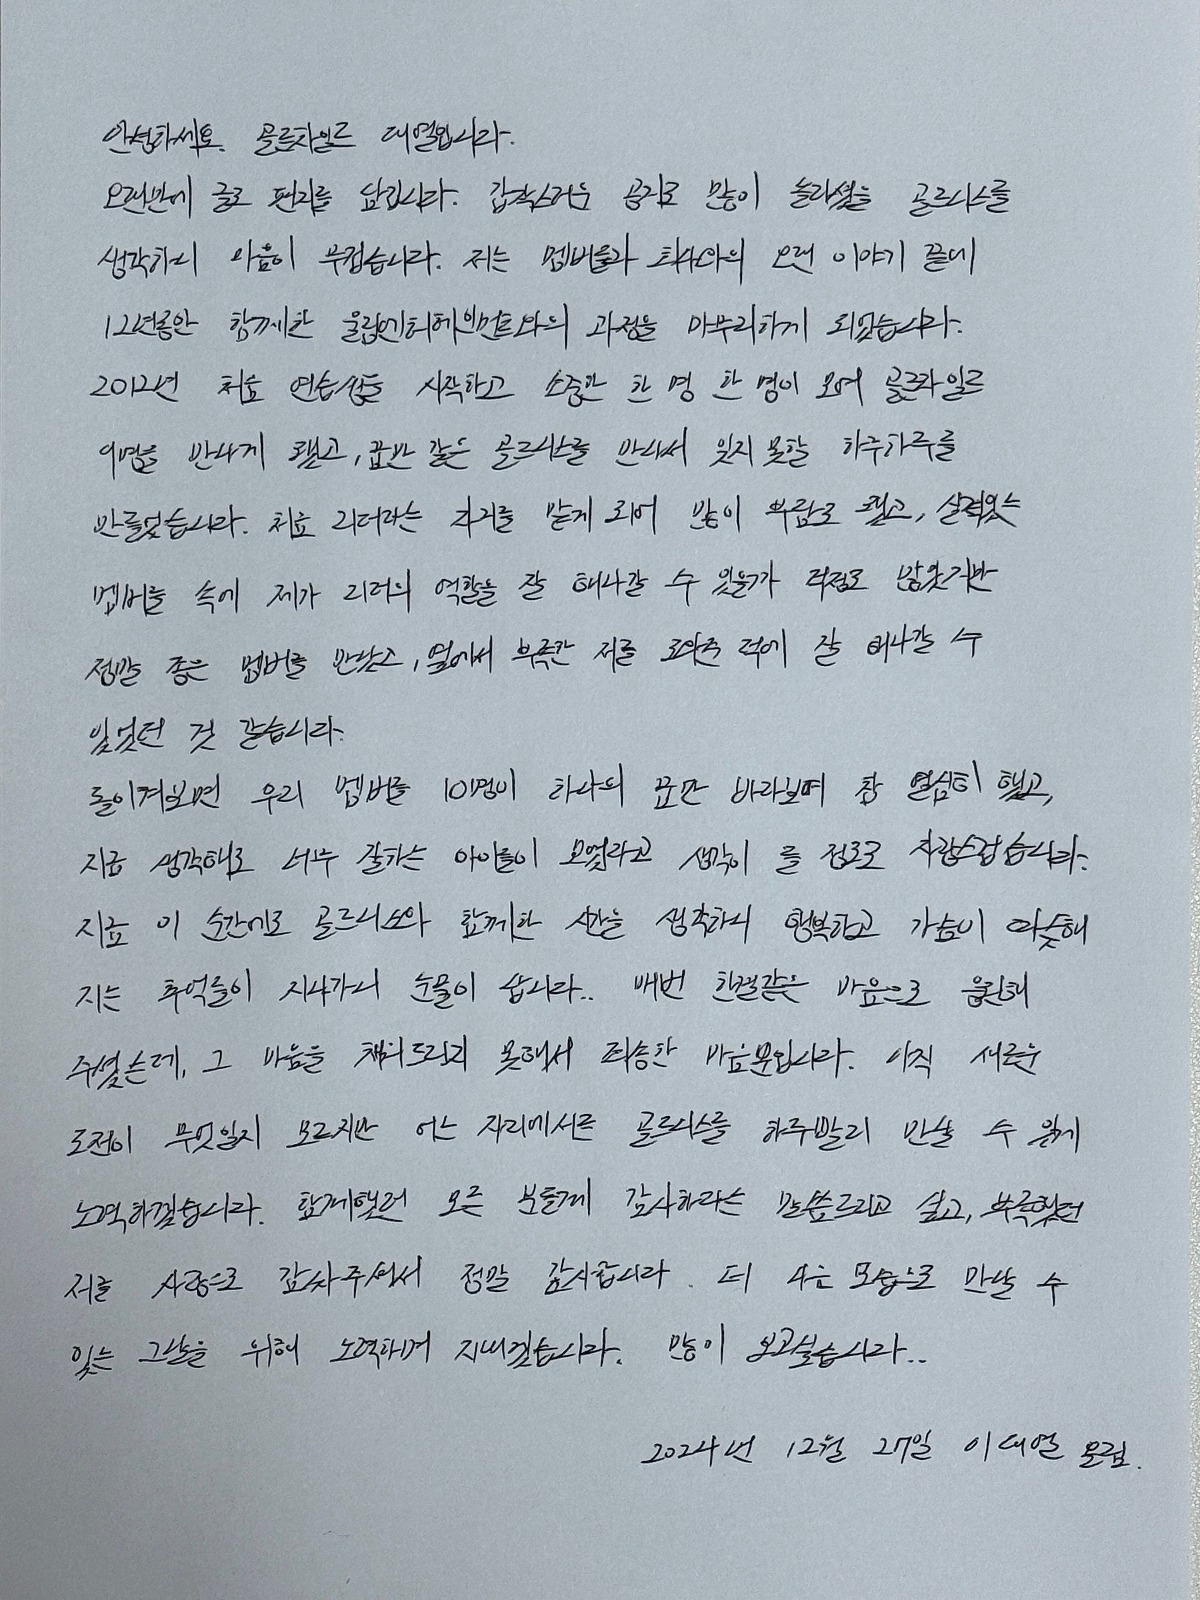 안녕하세요. 골든차일드 대열입니다.
오랜만에 글로 편지를 남깁니다. 갑작스러운 공지로 많이 놀라셨을 골드니스를
생각하니 마음이 무겁습니다. 저는 멤버들과 회사와의 오랜 이야기 끝에
12년동안 함께한 울림엔터테인먼트와의 과정을 마무리하게 되었습니다.
2012년 처음 연습생을 시작하고 소중한 한 명 한 명이 모여 골든차일드
9명을 만나게 됐고, 꿈만 같은 골드니스를 만나서 잊지 못할 하루하루를
만들었습니다. 처음 리더라는 자리를 맡게 되어 많이 부담도 됐고, 실력있는
멤버들 속에 제가 리더의 역할을 잘 해나갈 수 있을까 걱정도 많았지만
정말 좋은 멤버들 만났고, 옆에서 부족한 저를 도와준 덕에 잘 해나갈 수
있었던 것 같습니다.
돌이켜보면 우리 멤버들 10명이 하나의 꿈만 바라보며 참 열심히 했고,
지금 생각해도 너무 잘하는 아이들이 모였다고 생각이 들 정도로 자랑스럽습니다.
지금 이 순간에도 골드니스와 함께한 시간을 생각하니 행복하고 가슴이 따뜻해
지는 추억들이 지나가니 눈물이 납니다.. 매번 한결같은 마음으로 응원해
주셨는데, 그 마음을 채워드리지 못해서 죄송한 마음뿐입니다. 아직 새로운
도전이 무엇일지 모르지만 어느 자리에서든 골드니스를 하루빨리 만날 수 있게
노력하겠습니다. 함께했던 모든 분들께 감사하다는 말씀드리고 싶고, 부족했던
저를 사랑으로 감싸주셔서 정말 감사합니다. 더 나은 모습으로 만날 수
있는 그날을 위해 노력하며 지내겠습니다. 많이 보고싶습니다..
2024년 12월 27일 이대열 올림.